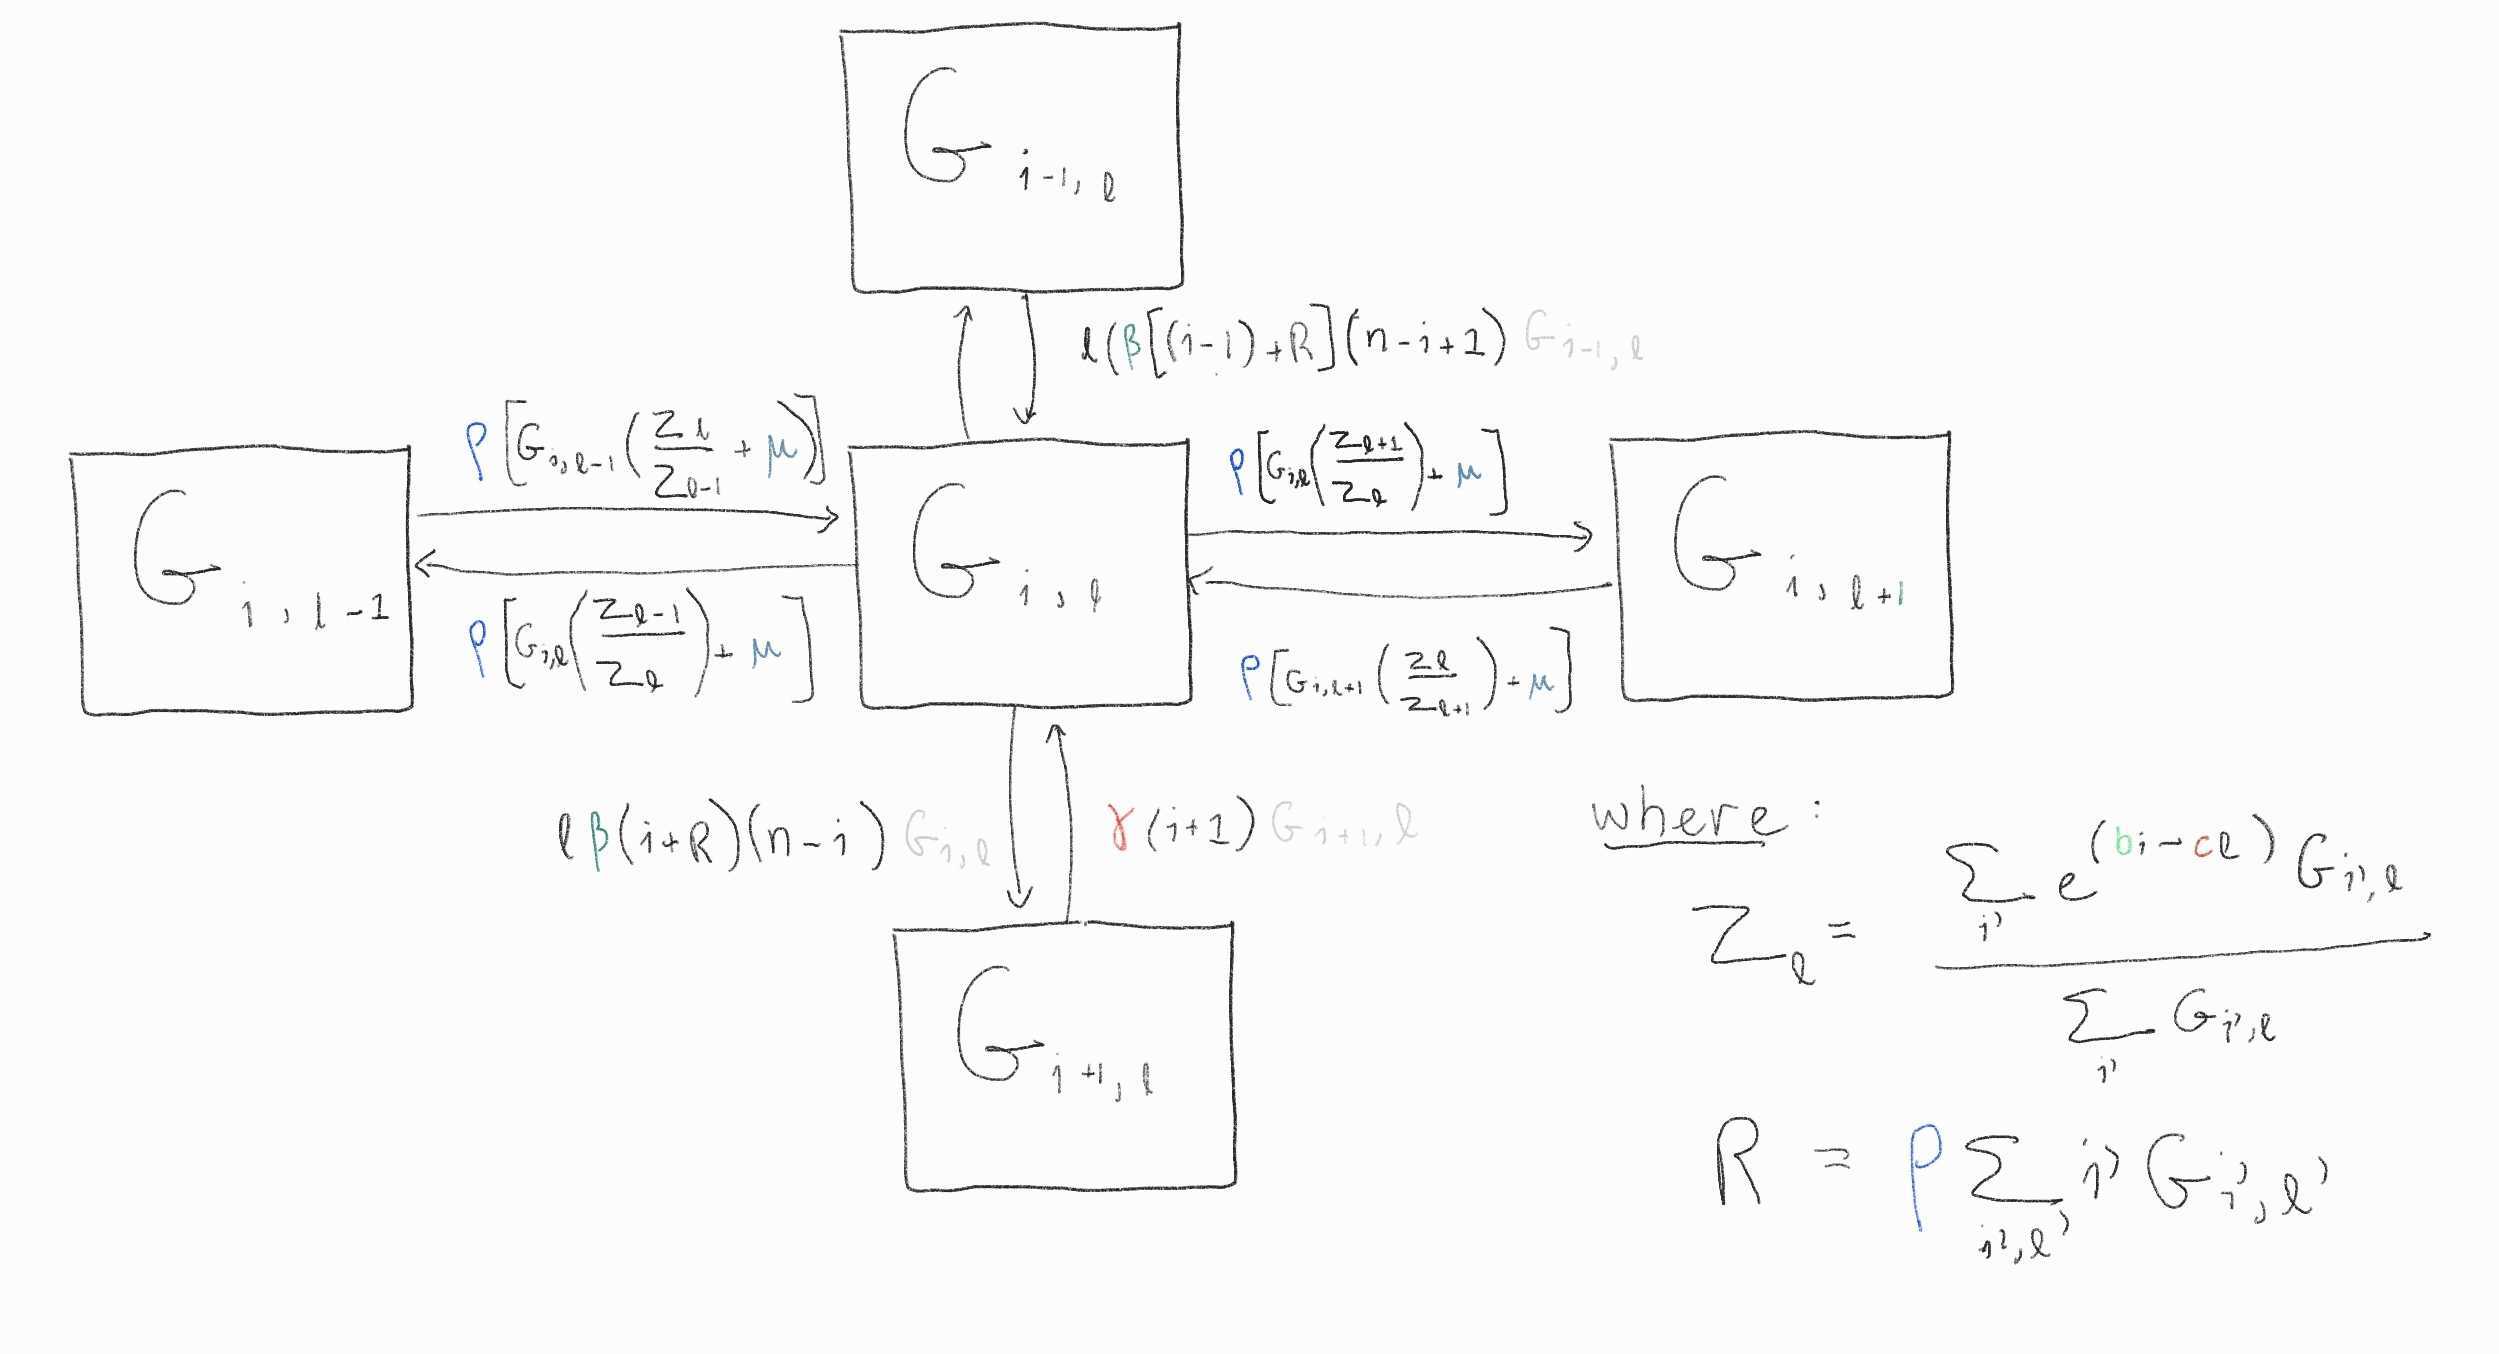 G i-1, ℓ
ℓ(β[(i-1)+R](n-i+1) G i-1, ℓ
ρ[G i,ℓ-1 (Z ℓ / Z ℓ-1 + μ)]
ρ[G i,ℓ (Z ℓ+1 / Z ℓ) + μ]
G i, ℓ-1
G i, ℓ
G i, ℓ+1
ρ[G i,ℓ (Z ℓ-1 / Z ℓ) + μ]
ρ[G i,ℓ+1 (Z ℓ / Z ℓ+1) + μ]
ℓβ(i+R)(n-i) G i,ℓ
γ(i+1) G i+1, ℓ
where:
Z ℓ = Σ i' e^(bi-cℓ) G i',ℓ / Σ i' G i',ℓ
G i+1, ℓ
R = ρ Σ i',ℓ' i' G i',ℓ'